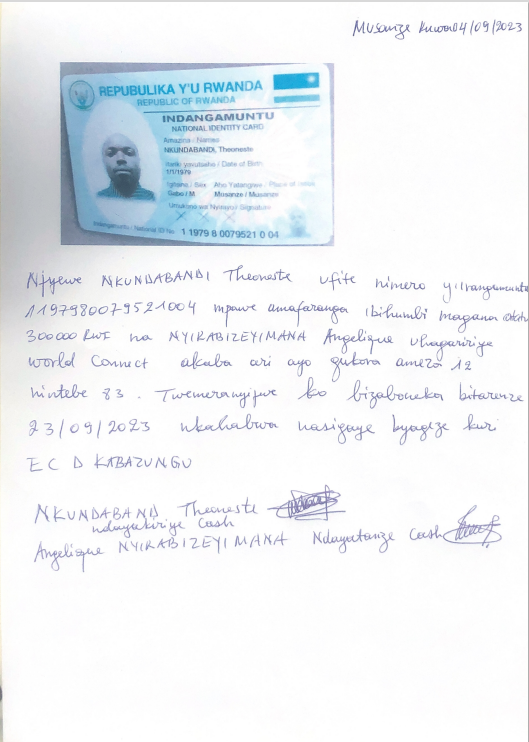 Musanze kuwa 04/09/2023
REPUBULIKA Y'U RWANDA
REPUBLIC OF RWANDA
INDANGAMUNTU
NATIONAL IDENTITY CARD
Amazina / Names
NKUNDABANDI, Theoneste
Itariki yavutseho / Date of Birth
1/1/1979
Igitsina / Sex Aho Yatangiwe / Place of Issue
Gabo / M Musanze / Musanze
Umukono wa Nyirayo / Signature
Indangamuntu / National ID No. 1 1979 8 0079521 0 04
Njyewe NKUNDABANDI Theoneste ufite nimero y'irangamuntu
1197980079521004 mpawe amafaranga ibihumbi magana
300000 RWF na NYIRABIZEYIMANA Angelique uhagaririye
World Connect akaba ari ayo gukora ameza 12
nintebe 83. Twemeranyijwe ko bizaboneka bitarenze
23/09/2023 nkahabwa nasigaye byageze kuri
ECD KABAZUNGU
NKUNDABAND Theoneste
ndayakiriye Cash
Angelique NYIRABIZEYIMANA Ndayatanze Cash